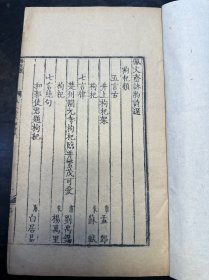 佩文齋詠物詩選
枸杞類
五言古
井上枸杞架 唐 孟郊
枸杞 宋 蘇軾
七言律
楚州開元寺枸杞臨井繁茂可愛 唐 劉禹錫
枸杞 宋 楊萬里
七言絕句
和郭使君題枸杞 唐 白居易